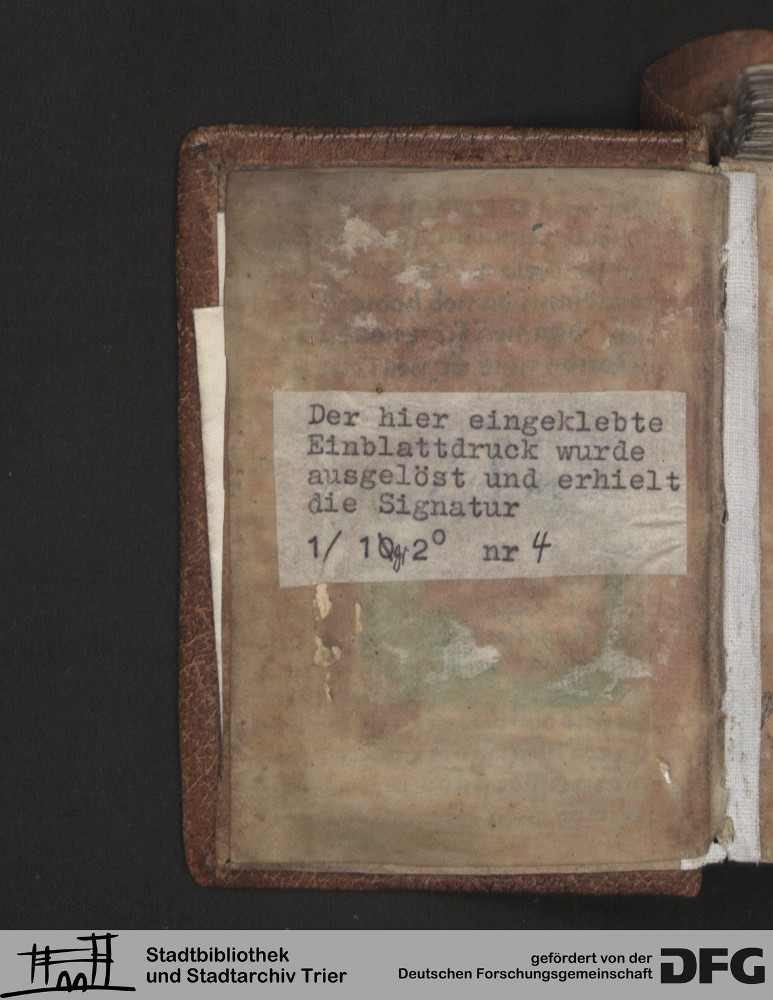 Der hier eingeklebte
Einblattdruck wurde
ausgelöst und erhielt
die Signatur
1/ 2° nr 4
Stadtbibliothek
und Stadtarchiv Trier
gefördert von der
Deutschen Forschungsgemeinschaft
DFG